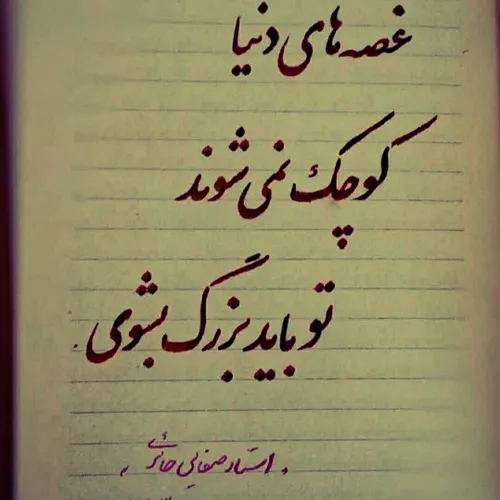 غصه های دنیا
کوچک نمی شوند
تو باید بزرگ بشوی
استاد صفایی حائری